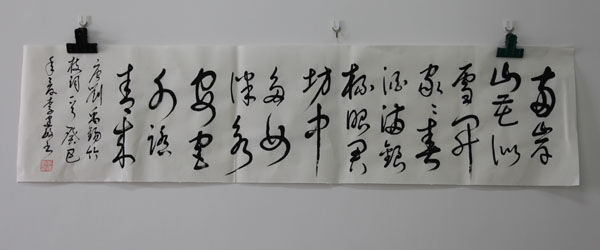 两岸
山花似
雪开
家々春
酒满银
杯昭君
坊中
多女
伴永
安宫
外踏
青来
唐刘禹锡竹
枝词一首癸巳
年李书